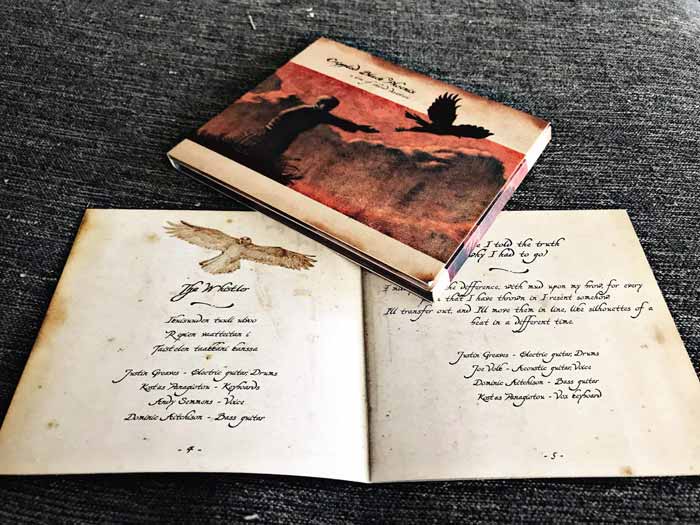 Crippled Black Phoenix
a love of shared disasters
The Whistler
Ikuisuuden tuuli ulvoo
Repien vaatteitani
Taistelen taakkani kanssa
Justin Greaves - Electric guitar, Drums
Kostas Panagiotou - Keyboards
Andy Semmens - Voice
Dominic Aitchison - Bass guitar
- 4 -
I told the truth
why I had to go)
the difference, with mud upon my brow, for every
that I have thrown in I resent somehow
I'll transfer out, and I'll move them in line, like silhouettes of a
beat in a different time.
Justin Greaves - Electric guitar, Drums
Joe Volk - Acoustic guitar, Voice
Dominic Aitchison - Bass guitar
Kostas Panagiotou - Vox keyboard
- 5 -